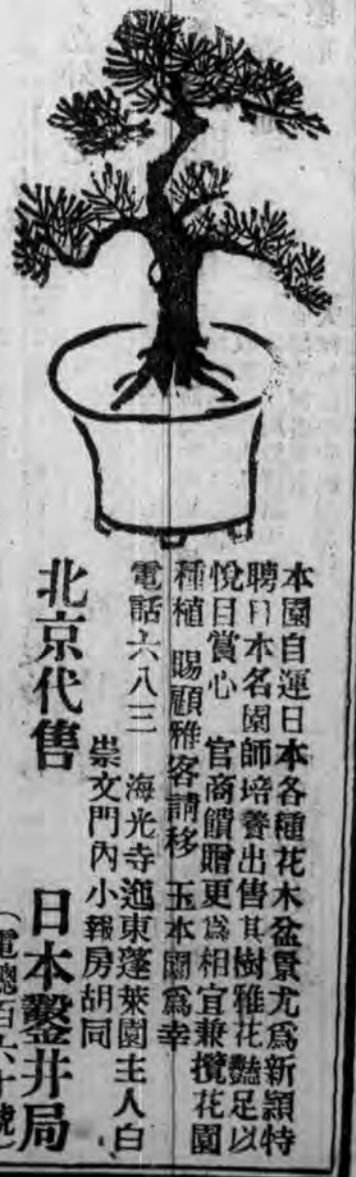 本園自運日本各種花木盆景尤爲新穎特
聘日本名園師培養出售其樹雅花豔足以
悅目賞心　官商饋贈更爲相宜兼攬花園
種植　賜顧雅客請移　玉本園爲幸
電話六八三　海光寺迤東蓬萊園主人白
崇文門內小報房胡同
北京代售　日本鑿井局
（電總百六十號）